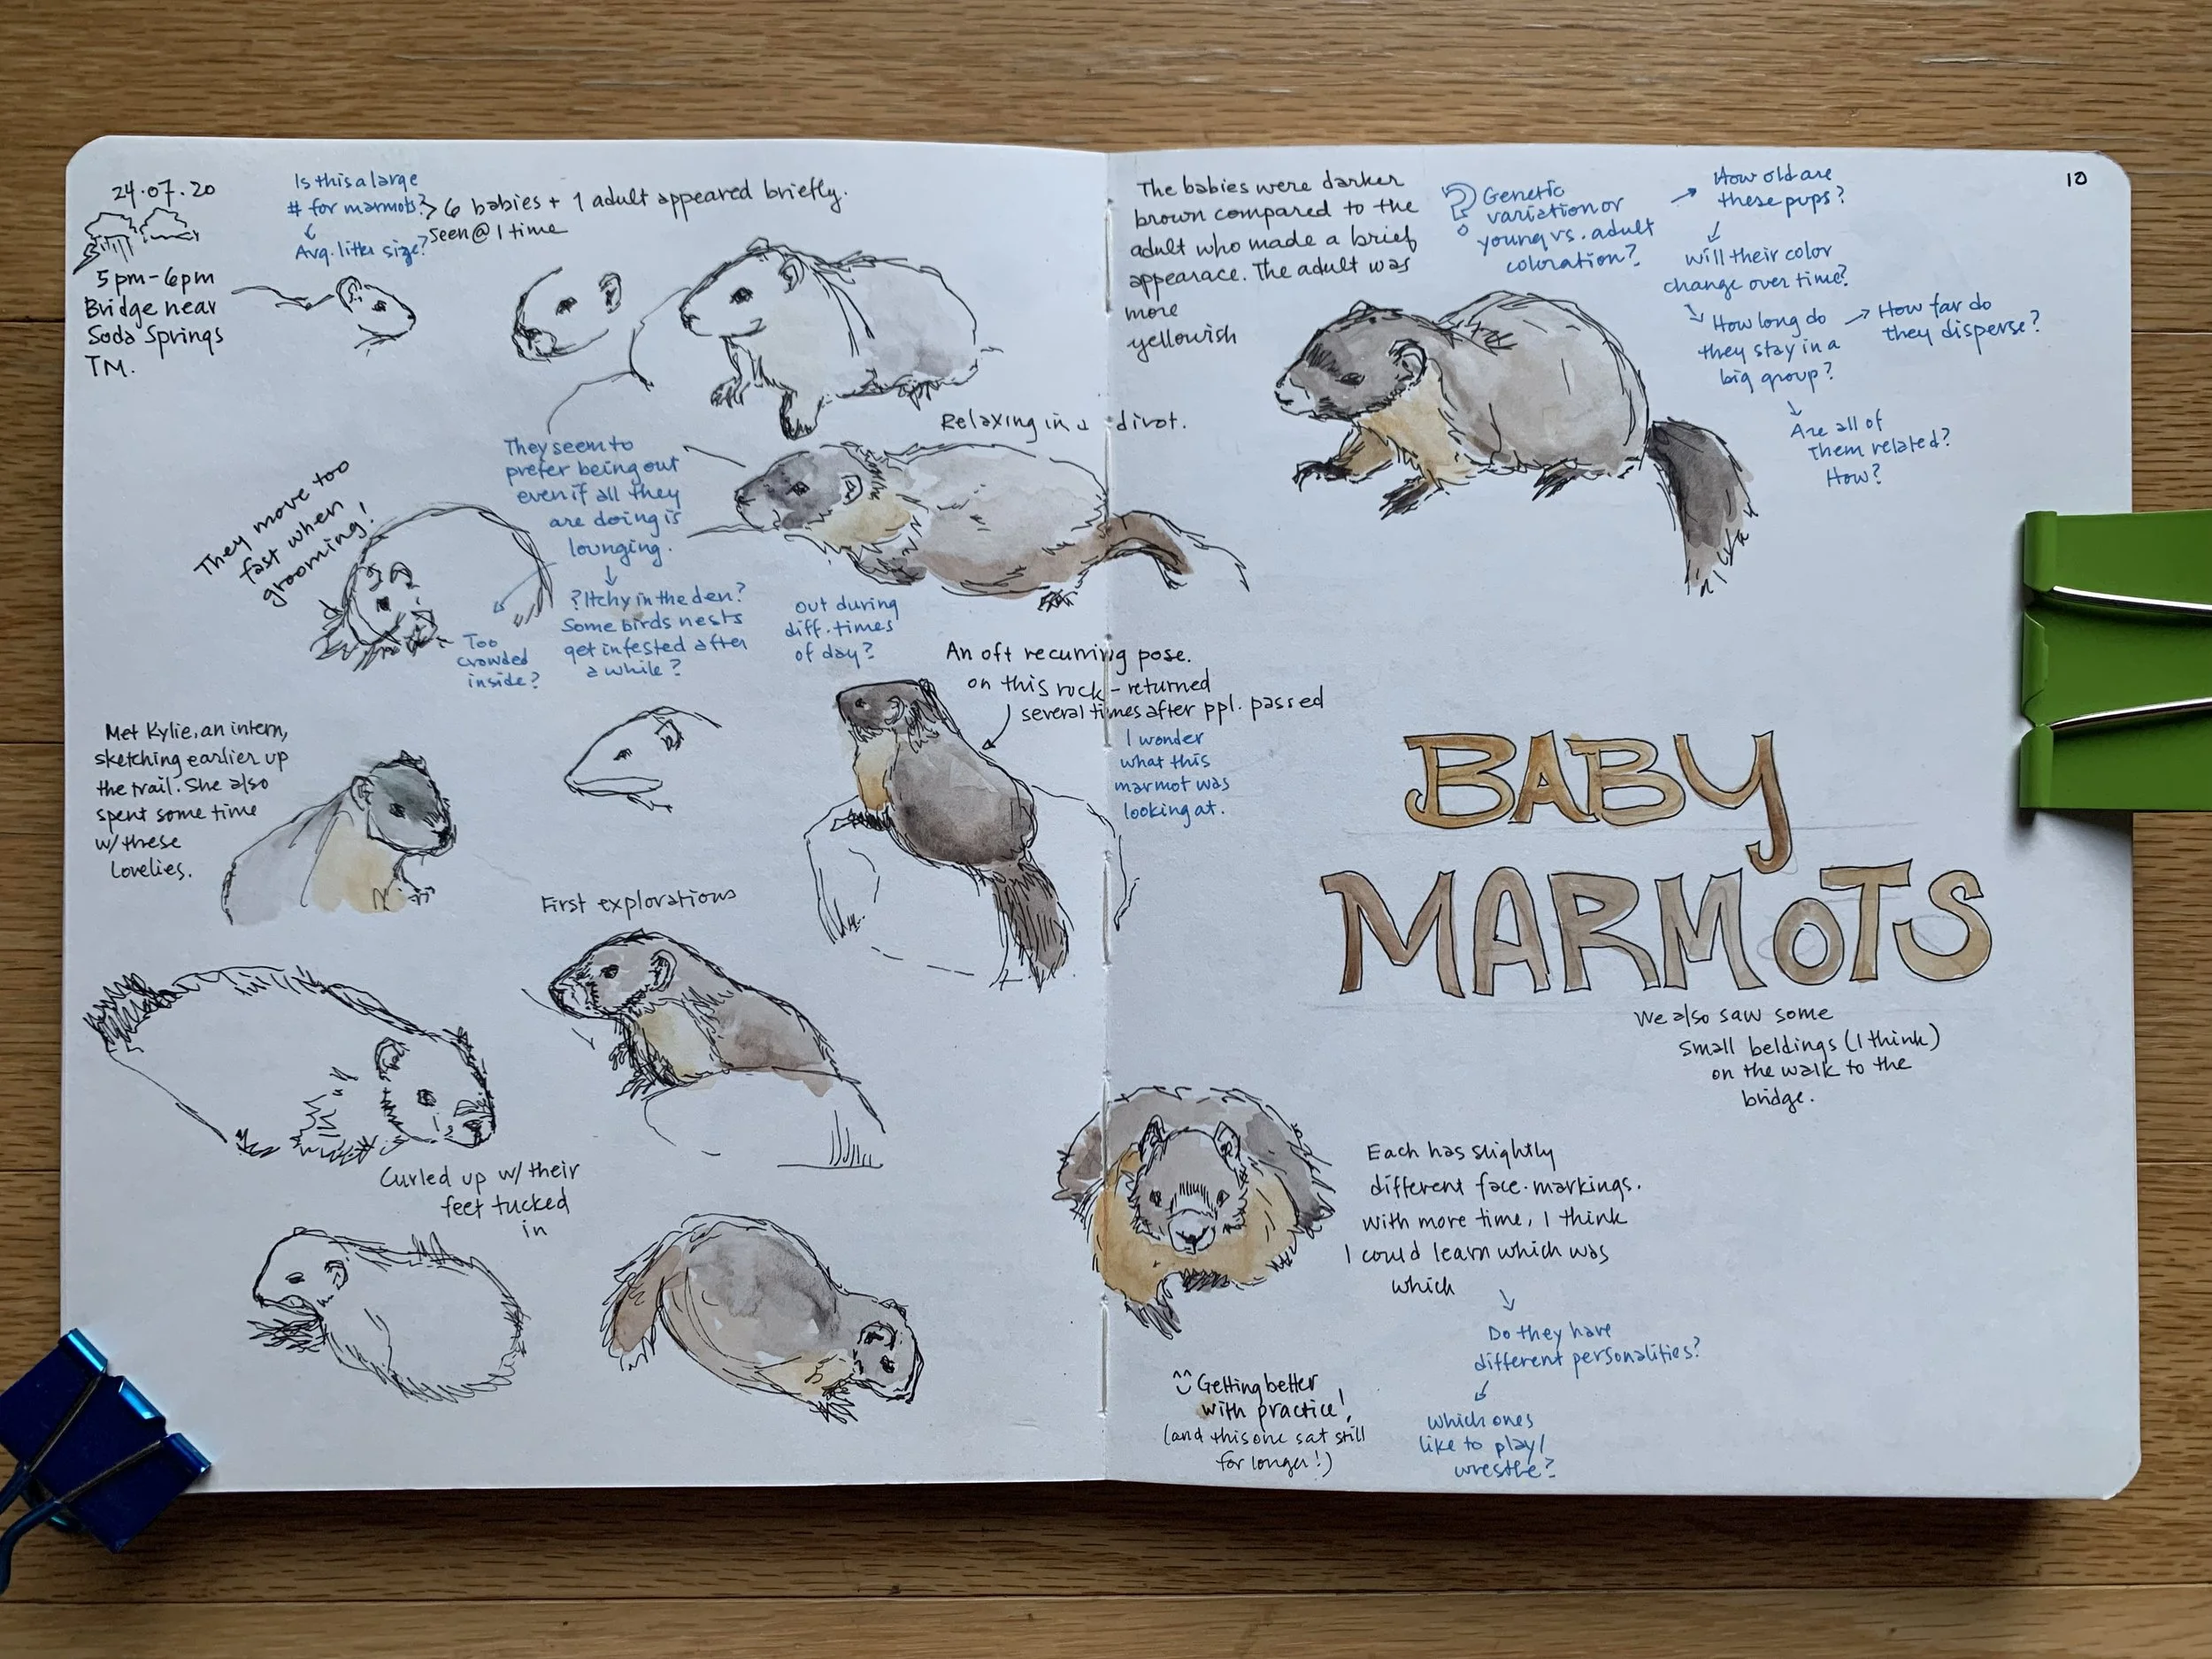 24.07.20
5pm-6pm
Bridge near
Soda Springs
TM.
Is this a large
# for marmots?
Avg. litter size?
6 babies + 1 adult appeared briefly.
seen @ 1 time
They seem to
prefer being out
even if all they
are doing is
lounging.
?Itchy in the den?
Some birds nests
get infested after
a while?
Too
crowded
inside?
out during
diff. times
of day?
They move too
fast when
grooming!
Relaxing in a divot.
An oft recurring pose.
on this rock - returned
several times after ppl. passed
I wonder
what this
marmot was
looking at.
Met Kylie, an intern,
sketching earlier up
the trail. She also
spent some time
w/ these
lovelies.
First explorations
Curled up w/ their
feet tucked
in
10
The babies were darker
brown compared to the
adult who made a brief
appearace. The adult was
more
yellowish
? Genetic
variation or
young vs. adult
coloration?
How old are
these pups?
Will their color
change over time?
How long do
they stay in a
big group?
How far do
they disperse?
Are all of
them related?
How?
BABY
MARMOTS
We also saw some
small beldings (I think)
on the walk to the
bridge.
Each has slightly
different face-markings.
With more time, I think
I could learn which was
which
Do they have
different personalities?
which ones
like to play/
wrestle?
Getting better
with practice!
(and this one sat still
for longer!)